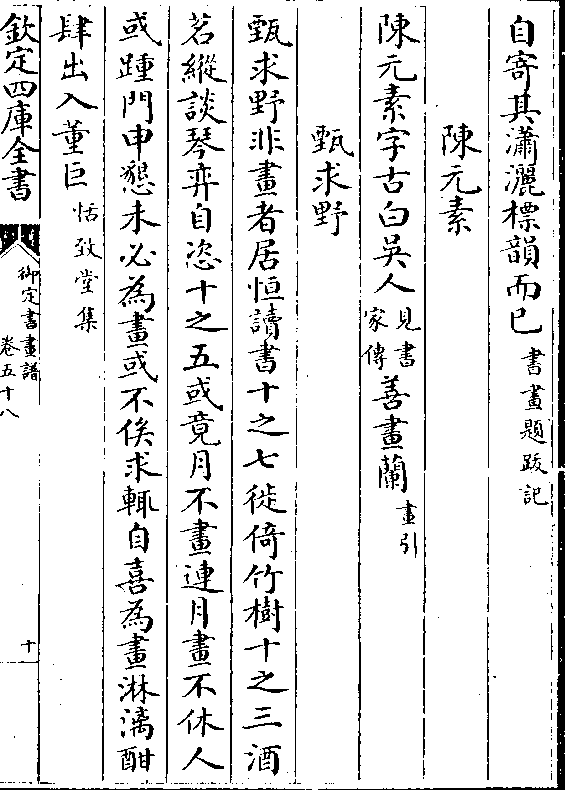 自寄其瀟灑標韻而已書畫題跋記
陳元素
陳元素字古白吳人見書家傳善畫蘭畫引
甄求野
甄求野非畫者居恒讀書十之七徙倚竹樹十之三酒
茗縱談琴弈自恣十之五或竟月不畫連月畫不休人
或踵門申懇未必為畫或不俟求輒自喜為畫淋漓酣
肆出入董巨恬致堂集
欽定四庫全書
御定書畫譜
卷五十八
十